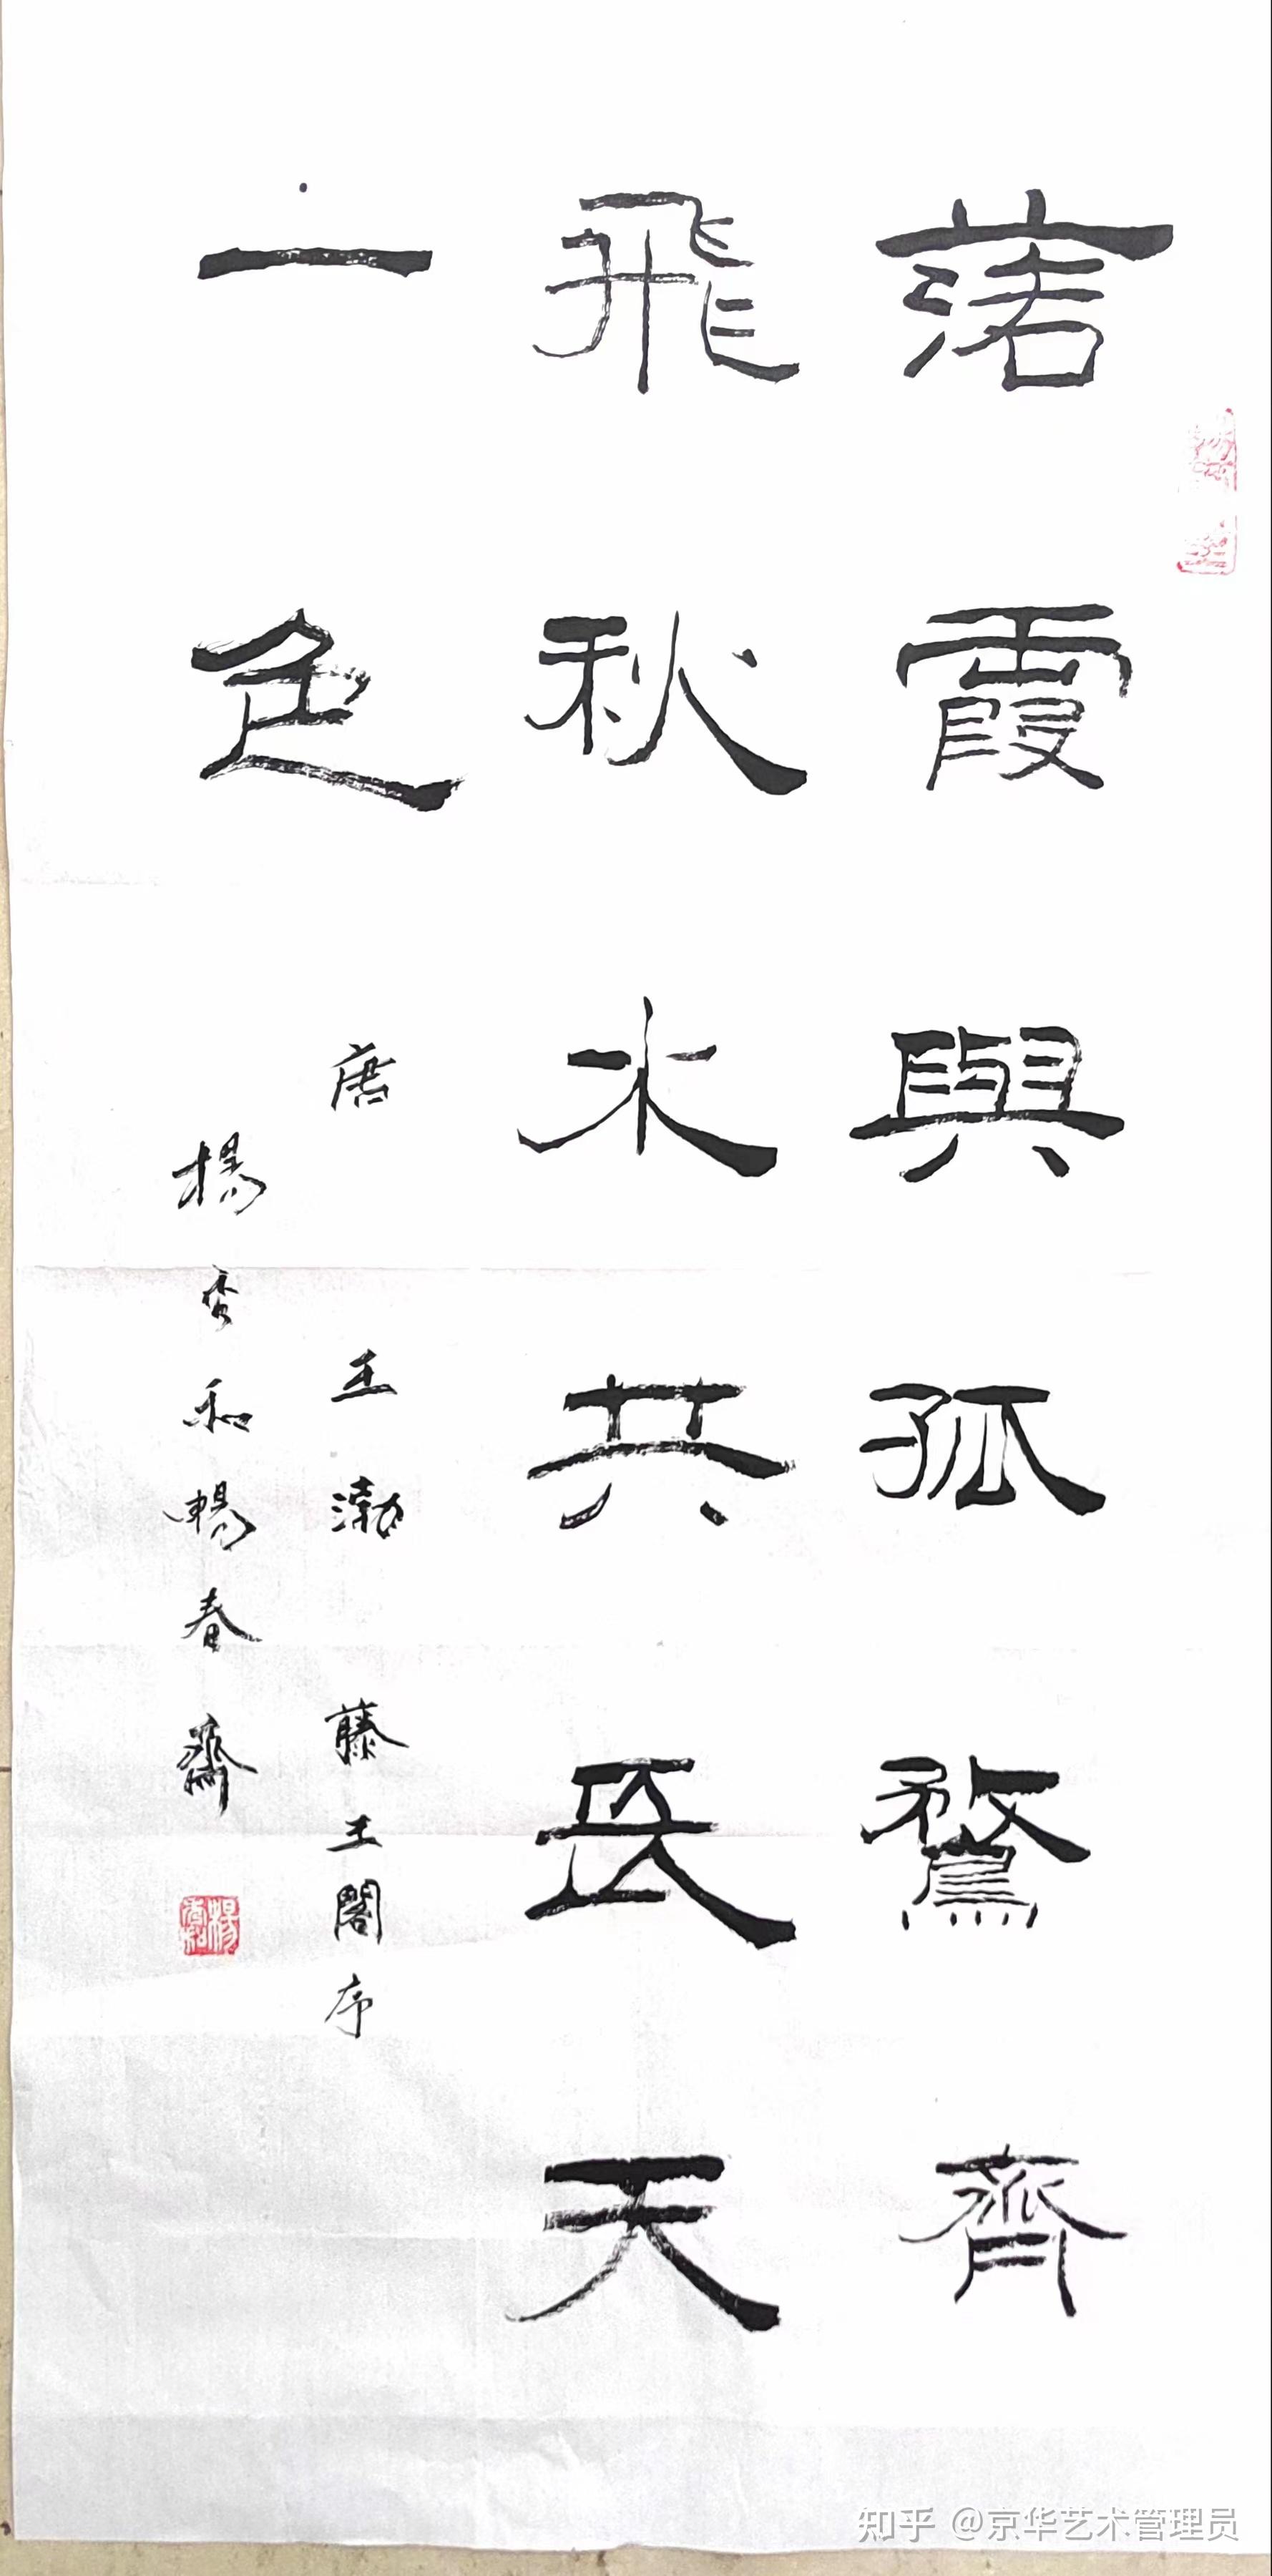 落霞與孤鶩齊
飛秋水共長天
一色
唐王渤藤王閣序
楊秀和暢春齋
知乎 @京华艺术管理员